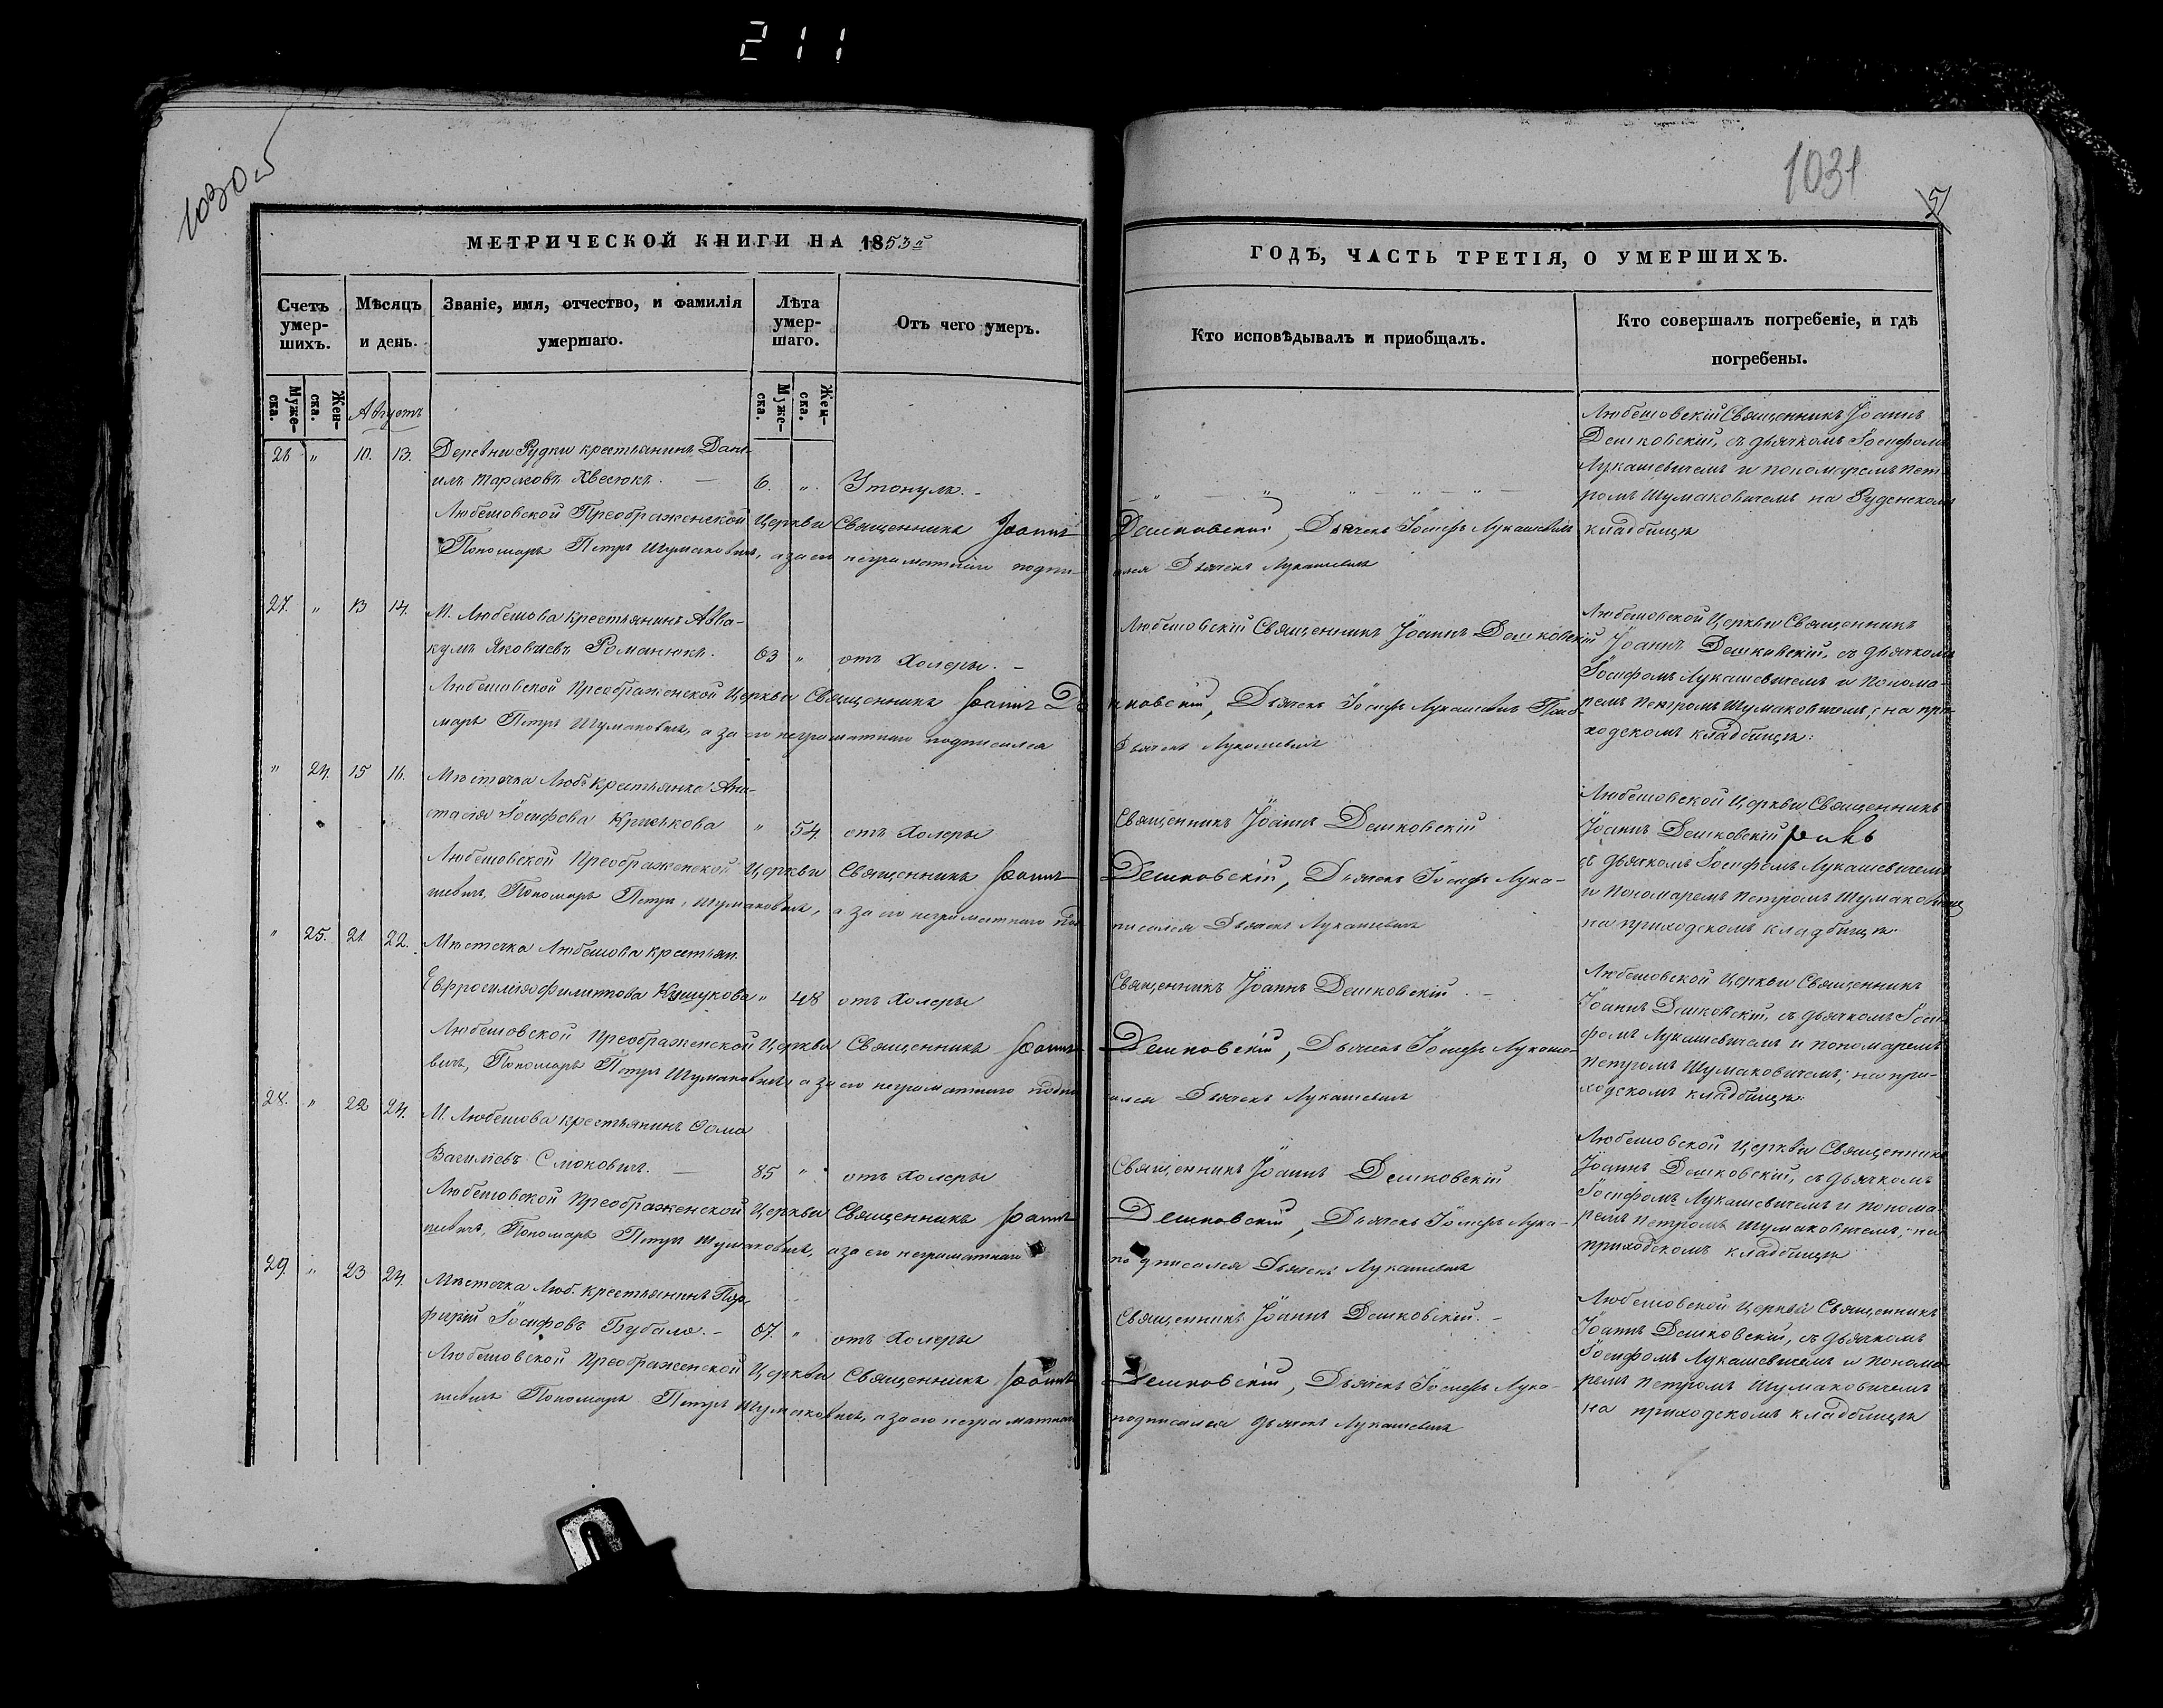 211
1030 об
1031
51
МЕТРИЧЕСКОЙ КНИГИ НА 1853й
ГОДЪ, ЧАСТЬ ТРЕТІЯ, О УМЕРШИХЪ.
Счетъ умер-шихъ.
Мѣсяцъ и день.
Званіе, имя, отчество, и фамилія умершаго.
Лѣта умер-шаго.
Отъ чего умеръ.
Кто исповѣдывалъ и приобщалъ.
Кто совершалъ погребеніе, и гдѣ погребены.
Муже-ска.
Жен-ска.
Муже-ска.
Жен-ска.
Августъ
26 " 10. 13. Деревни Рудки крестьянинъ Дани-
илъ Хвесюкъ. — 6. " Утонулъ. -
Любешовскій Священникъ Іоаннъ
Дешковскій, съ дьячкомъ Іосифомъ
Лукашевичемъ и пономаремъ Пет-
ромъ Шумаковичемъ на Руденскомъ
кладбищѣ
Любешовской Преображенской Церкви Священникъ Іоаннъ Дешковскій, Дьячекъ Іосифъ Лукашевичъ
Пономарь Петръ Шумаковичъ, а за его неграматнаго подпи-
ался Дьячекъ Лукашевичъ
27. " 13 14. М. Любешова крестьянинъ Авва-
кумъ Яковлевъ Романюкъ. 63 " отъ Холеры. -
Любешовскій Священникъ Іоаннъ Дешковскій
Любешовской Церкви Священникъ
Іоаннъ Дешковскій, съ дьячкомъ
Іосифомъ Лукашевичемъ и понома-
ремъ Петромъ Шумаковичемъ; на при-
ходскомъ кладбищѣ:
Любешовской Преображенской Церкви Священникъ Іоаннъ Де шковскій, Дьячекъ Іосифъ Лукашевичъ Поно-
марь Петръ Шумаковичъ, а за его неграматнаго подписался
Дьячекъ Лукашевичъ
" 24. 15 16. Мѣстечка Люб. крестьянка Ана-
стасія Іосифова " 54. отъ Холеры
Священникъ Іоаннъ Дешковскій
Любешовской Церкви Священникъ
Іоаннъ Дешковскій
съ дьячкомъ Іосифомъ Лукашевичемъ
и Пономаремъ Петромъ Шумаковичемъ
на приходскомъ кладбищѣ.
Любешовской Преображенской Церкви Священникъ Іоаннъ Дешковскій, Дьячекъ Іосифъ Лука-
шевичъ, Пономарь Петръ Шумаковичъ, а за его неграматнаго под
писался Дьячекъ Лукашевичъ
" 25. 21. 22. Мѣстечка Любешова крестьян.
Евфросинія Филиппова " 48 отъ Холеры
Священникъ Іоаннъ Дешковскій. -
Любешовской Церкви Священникъ
Іоаннъ Дешковскій, съ дьячкомъ Іоси-
фомъ Лукашевичемъ и пономаремъ
Петромъ Шумаковичемъ; на при-
ходскомъ кладбищѣ:
Любешовской Преображенской Церкви Священникъ Іоаннъ Дешковскій, Дьячекъ Іосифъ Лукаше-
вичъ, Пономарь Петръ Шумаковичъ а за его неграматнаго подпи
ался Дьячекъ Лукашевичъ
28. " 22 24. М. Любешова крестьянинъ Ѳома
Василіевъ Смоковичъ. — 85 " отъ Холеры
Священникъ Іоаннъ Дешковскій
Любешовской Церкви Священникъ
Іоаннъ Дешковскій, съ дьячкомъ
Іосифомъ Лукашевичемъ и понома-
ремъ Петромъ Шумаковичемъ; на
приходскомъ кладбищѣ
Любешовской Преображенской Церкви Священникъ Іоаннъ Дешковскій, Дьячекъ Іосифъ Лука-
шевичъ, Пономарь Петръ Шумаковичъ, а за его неграматнаго
подписался Дьячекъ Лукашевичъ
29. " 23 24. Мѣстечка Люб. крестьянинъ Пор-
фирій Іосифовъ Бубало. - 67. " отъ Холеры
Священникъ Іоаннъ Дешковскій. -
Любешовской Церкви Священникъ
Іоаннъ Дешковскій, съ дьячкомъ
Іосифомъ Лукашевичемъ и понома-
ремъ Петромъ Шумаковичемъ
на приходскомъ кладбищѣ
Любешовской Преображенской Церкви Священникъ Іоаннъ Дешковскій, Дьячекъ Іосифъ Лука-
шевичъ Пономарь Петръ Шумаковичъ, а за его неграматнаго
подписался дьячекъ Лукашевичъ